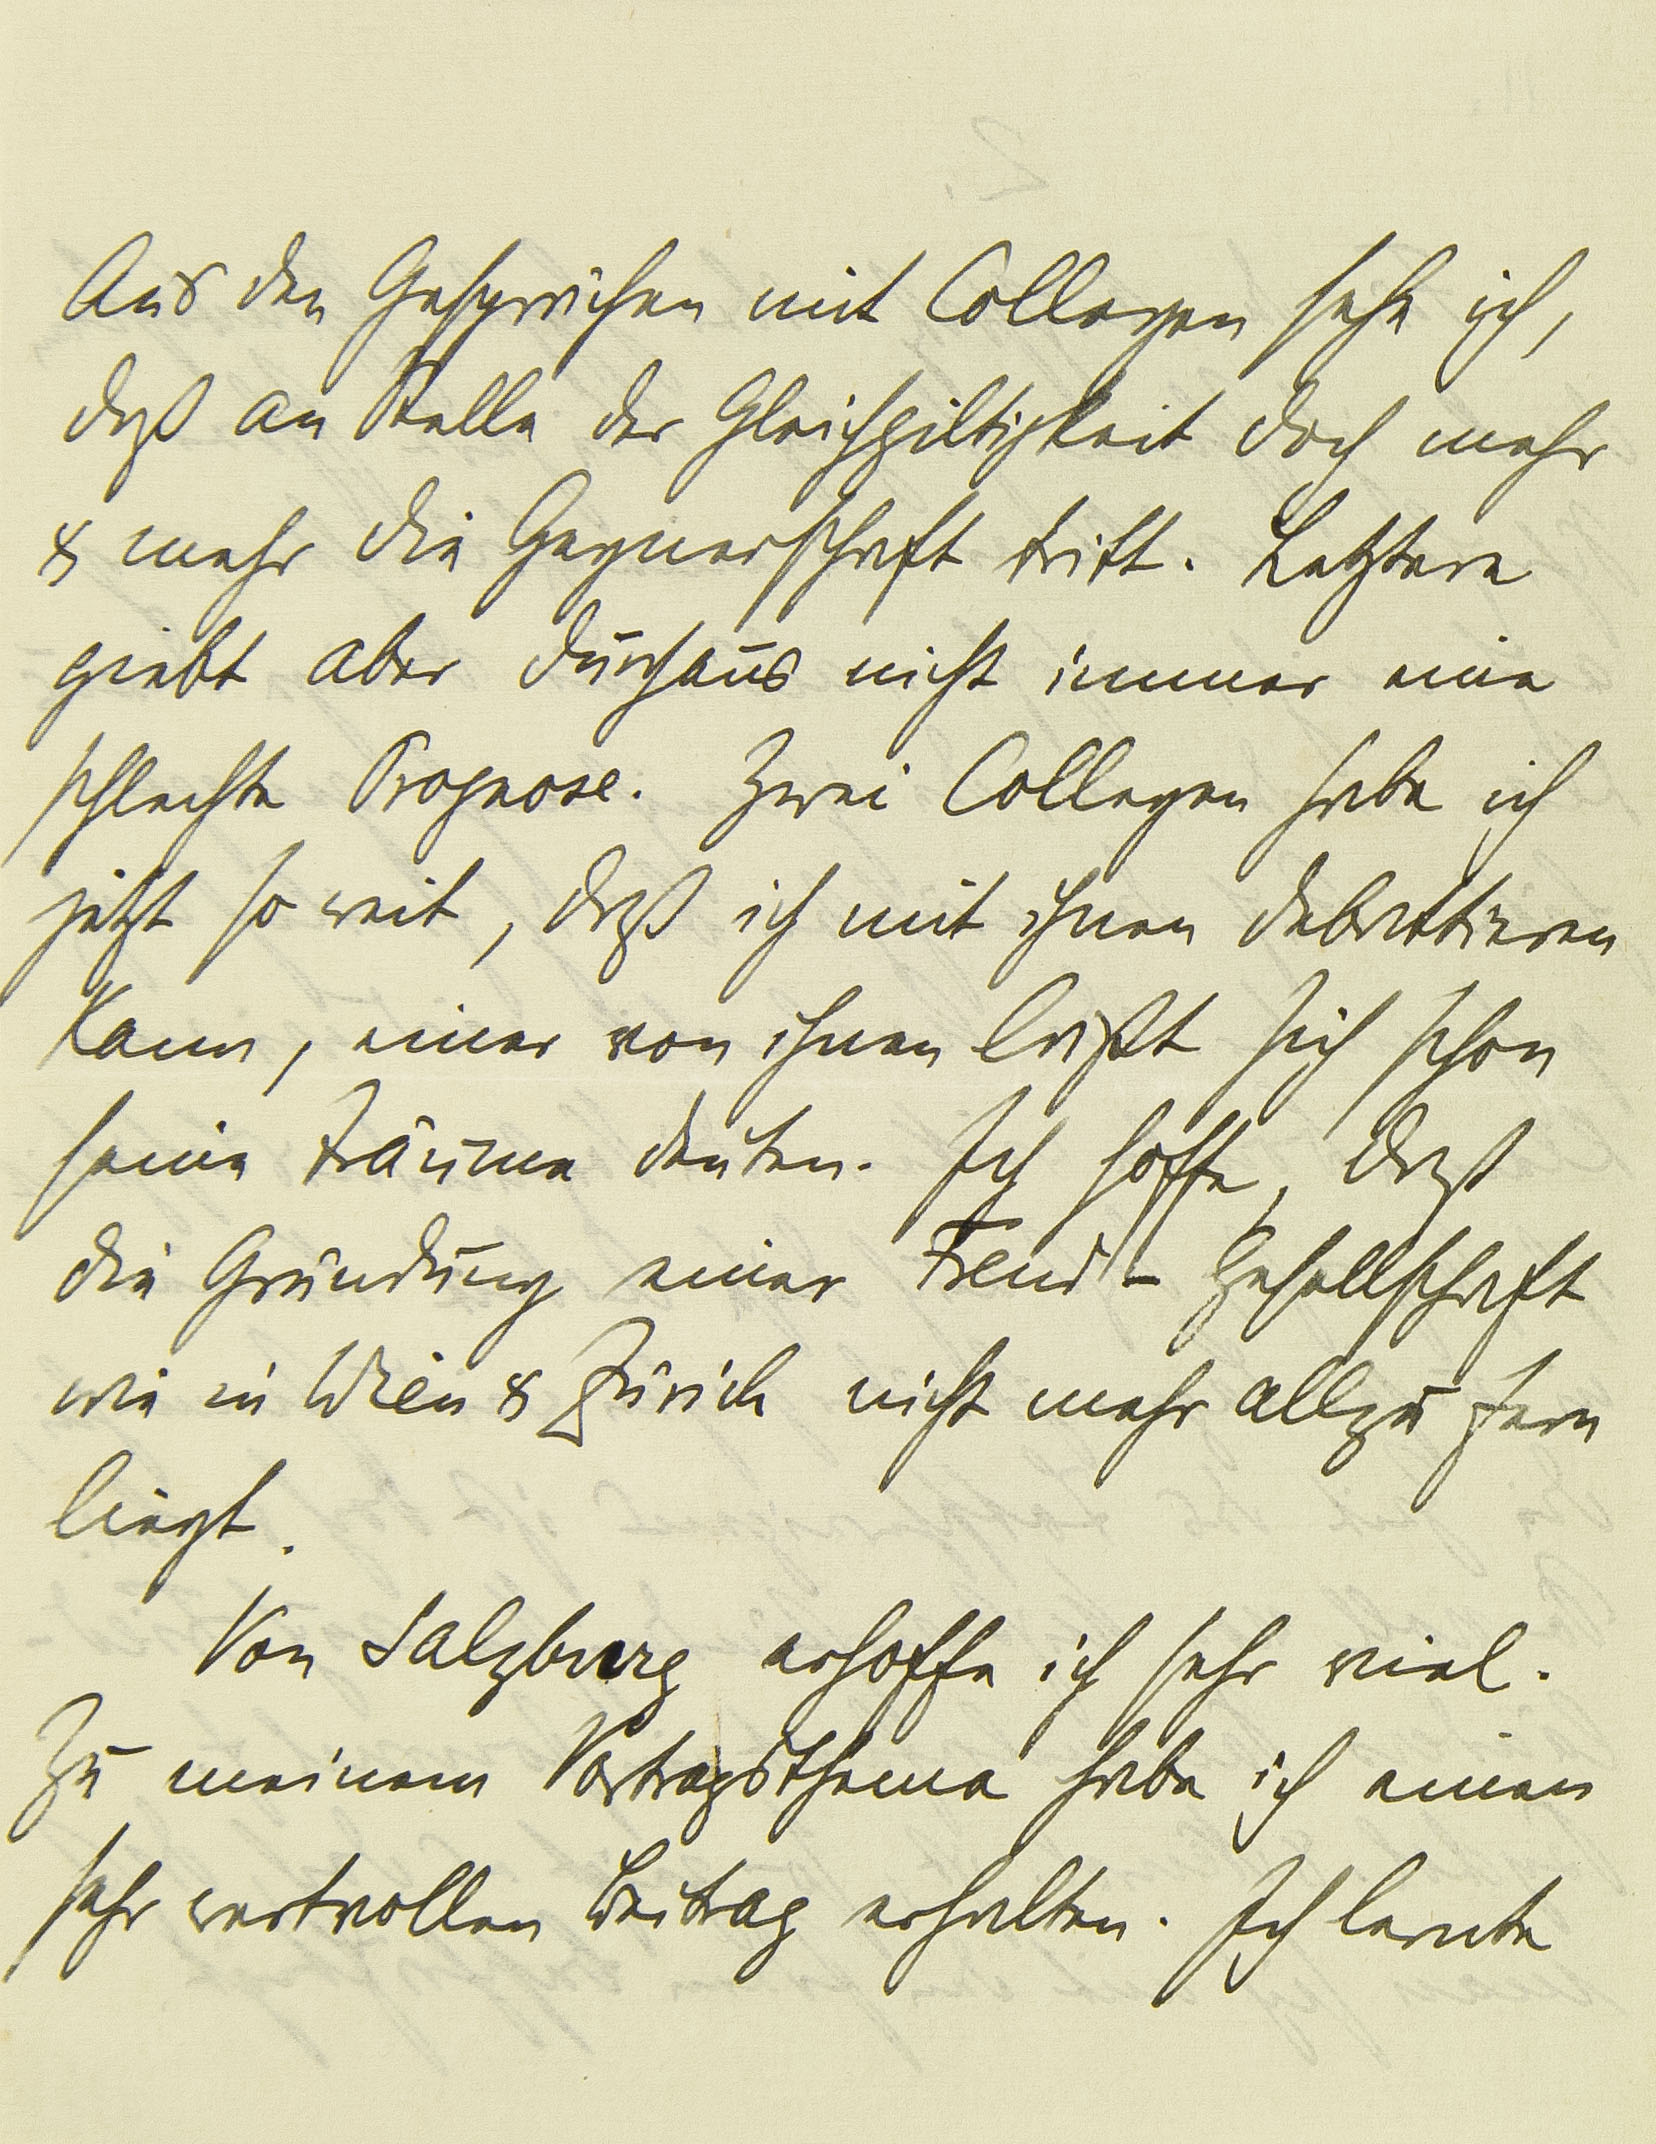 Aus den Gesprächen mit Collegen sehe ich,
daß an Stelle der Gleichgiltigkeit doch mehr
& mehr die Gegnerschaft tritt. Letztere
giebt aber durchaus nicht immer eine
schlechte Prognose. Zwei Collegen habe ich
jetzt so weit, daß ich mit ihnen debattieren
kann, einer von ihnen läßt sich schon
seine Träume deuten. Ich hoffe, daß
die Gründung einer Freud-Gesellschaft
wie in Wien & Zürich nicht mehr allzu fern
liegt.
Von Salzburg erhoffe ich sehr viel.
Zu meinem Vortragsthema habe ich einen
sehr wertvollen Beitrag erhalten. Ich lernte